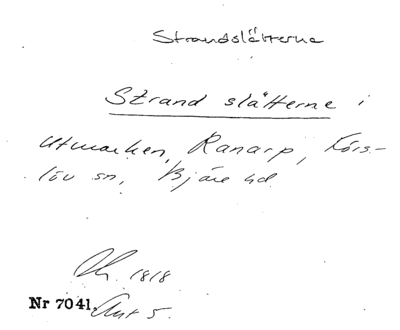 Strandslätterne
Strandslätterne i
utmarken, Ranarp, Förs-
löv sn, Bjäre hd.
1818
Nr 7041. Akt 5.